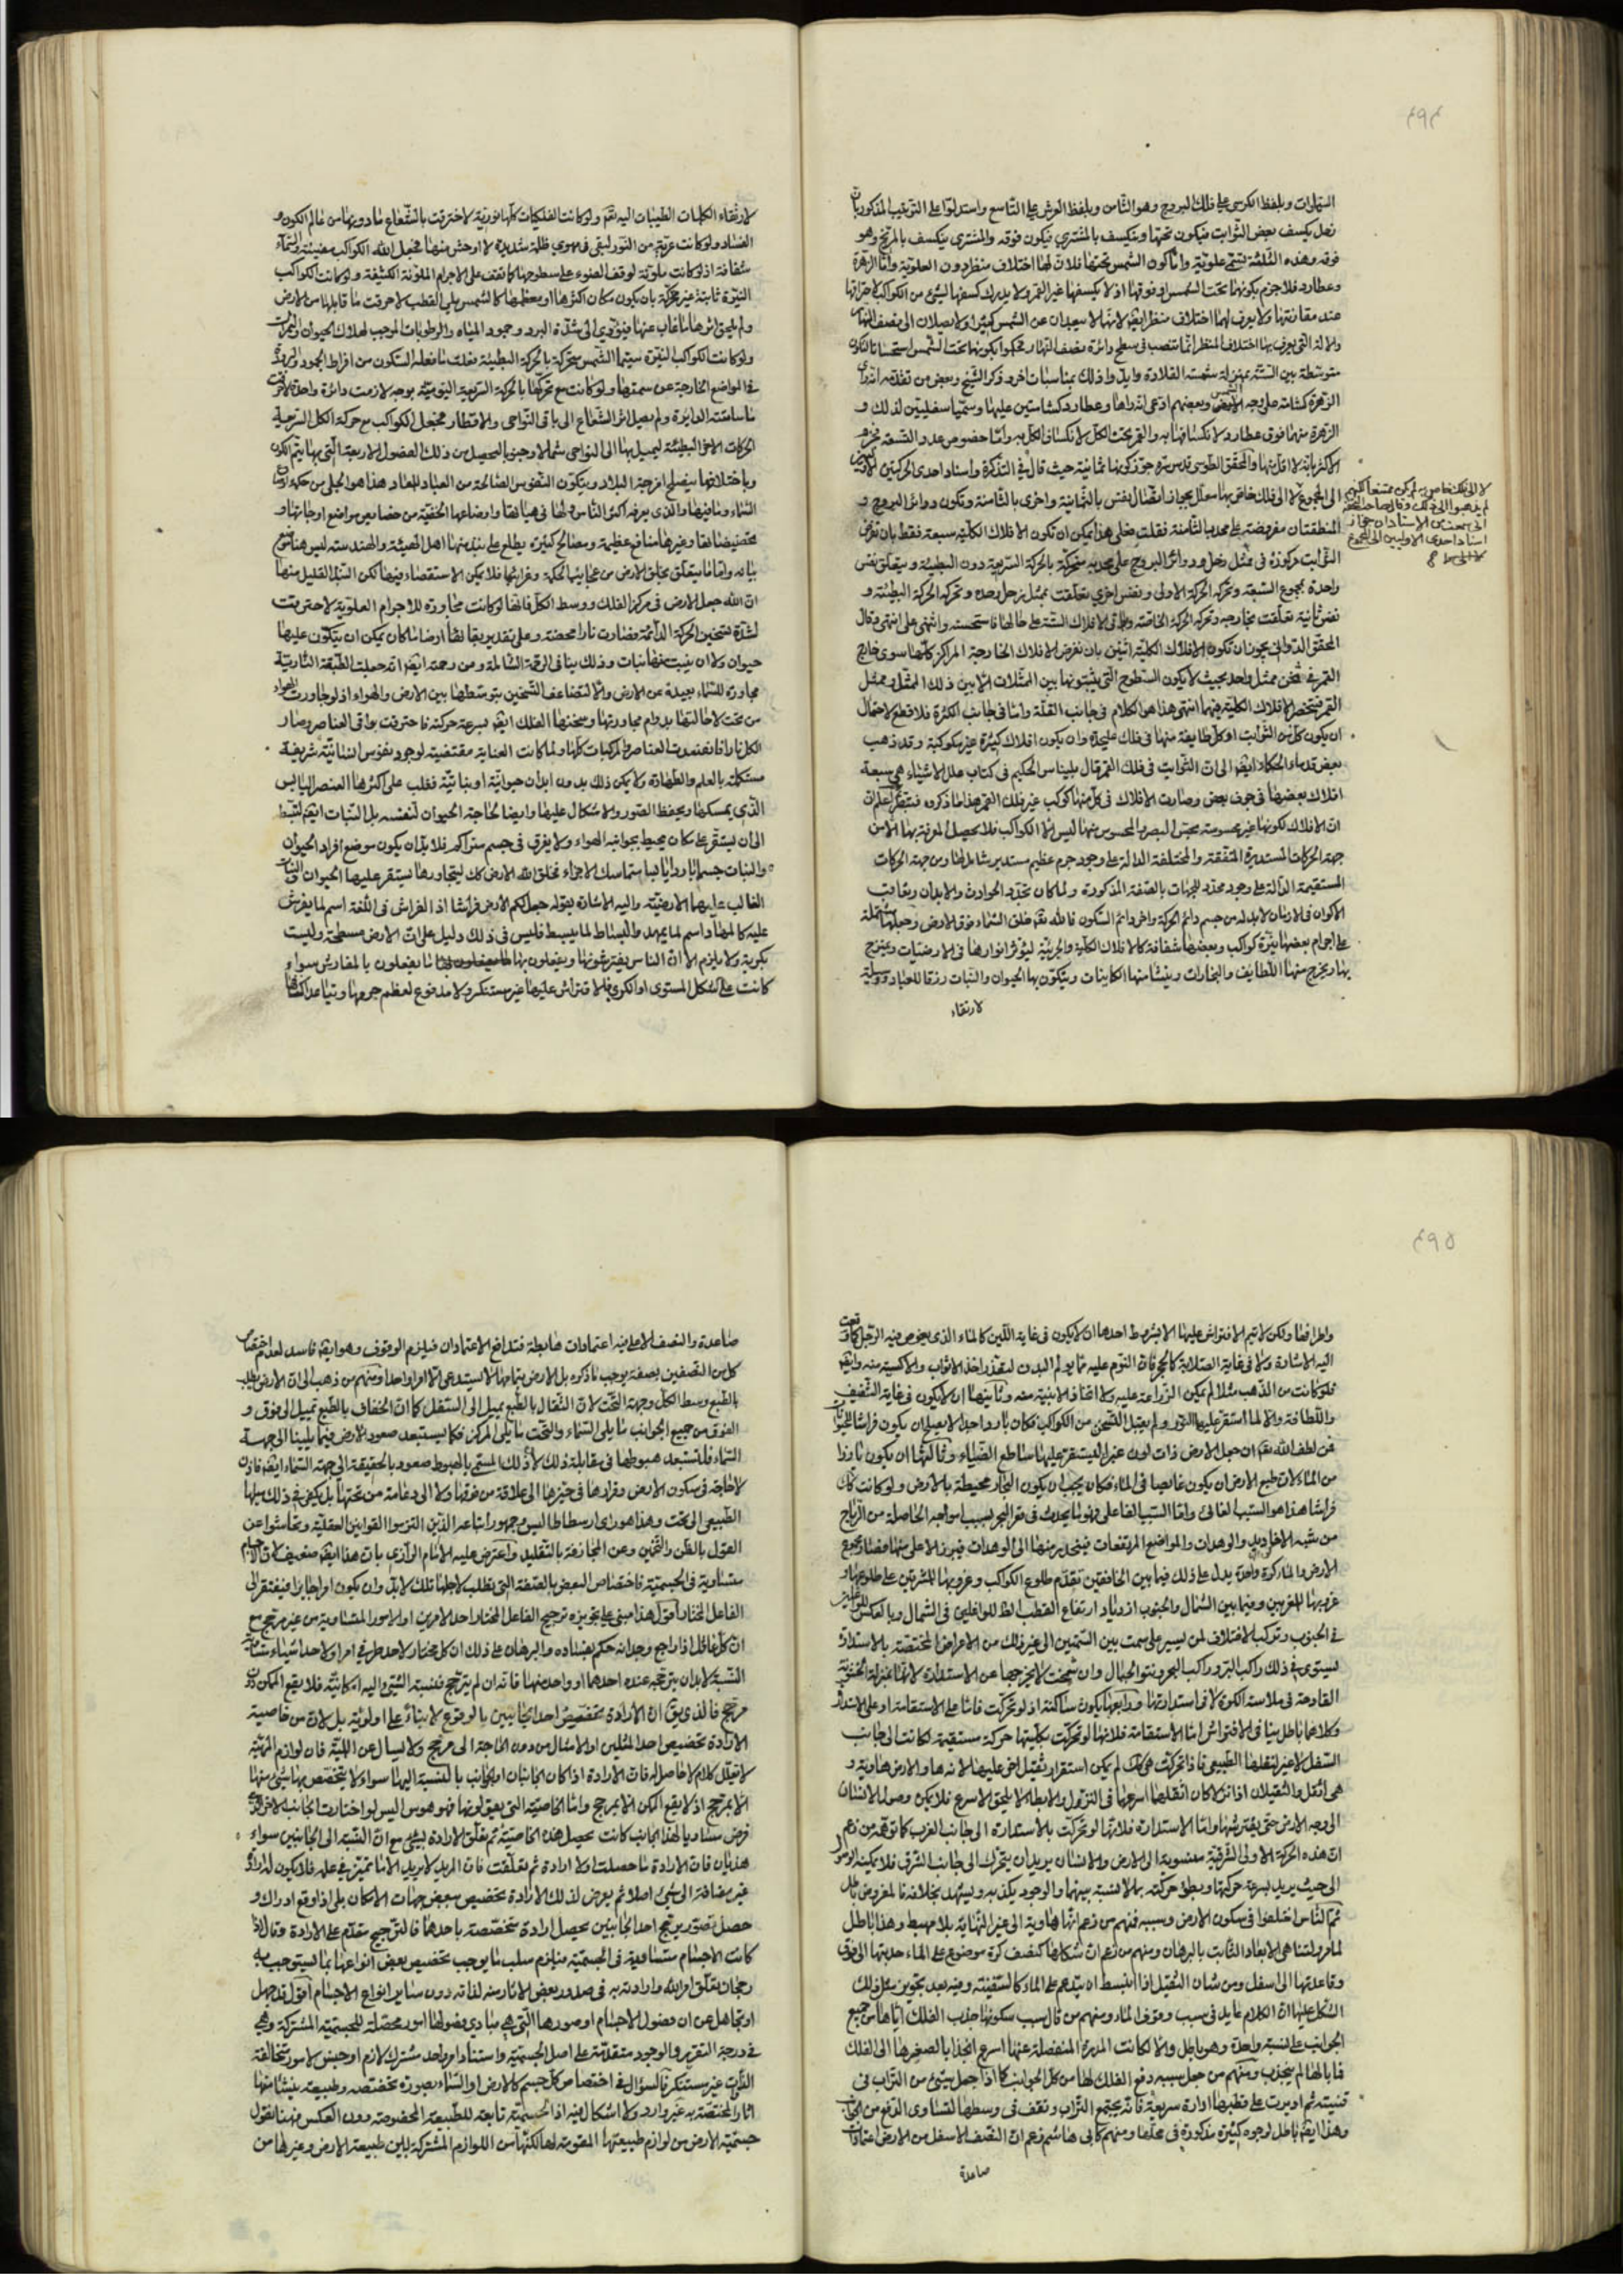 ٤٩٤
السماوات وبلفظ الكرسي على فلك البروج وهو الثامن وبلفظ العرش على التاسع واستدلوا على الترتيب المذكور بان
زحل يكسف بعض الثوابت فيكون تحتها وينكسف بالمشتري فيكون فوقه والمشتري ينكسف بالمريخ وهو
فوقه وهذه الثلثة تسمى علوية واما كون الشمس تحتها فلان لها اختلاف منظر دون العلوية واما الزهرة
وعطارد فلا جزم بكونهما تحت الشمس او فوقها اذ لا يكسفها غير القمر ولا يدرك كسفها لشيء من الكواكب لاحتراقها
عند مقارنتها ولا يعرف لهما اختلاف منظر ايضا لانهما لا يبعدان عن الشمس كثيرا ولا يصلان الى نصف النهار
والالة التي يعرف بها اختلاف المنظر انما تنصب في سطح دائرة نصف النهار فحكموا بكونهما تحت الشمس استحسانا لتكون
متوسطة بين الستة بمنزلة شمسة القلادة وايدوا ذلك بمناسبات اخر وذكر الشيخ وبعض من تقدمه انه راى
الزهرة كشامة على وجه الشمس وبعضهم ادعى انه راها وعطارد كشامتين عليها وسميا سفليتين لذلك و
الزهرة منهما فوق عطارد لانكسافها به والقمر تحت الكل لانكساف الكل به واما خصوص عدد التسعة فجزم
الاكثر بانه لا اقل منها والمحقق الطوسي قدس سره جوز كونها ثمانية حيث قال في التذكرة واسناد احدى الحركتين الاوليين
الى المجموع لا الى فلك خاص بها سعلل بجواز اتصال نفس بالثمانية واخرى بالثامنة وتكون دوائر البروج و
المنطقتان مفروضة على محدب الثامنة فقلت فعلى هذا يمكن ان تكون الافلاك الكلية سبعة فقط بان تفرض
الثوابت مركوزة في ممثل زحل ودوائر البروج على محدبه متحركة بالحركة السريعة دون البطيئة ويتعلق نفس
واحدة بمجموع السبعة وتحركه الحركة الاولى ونفس اخرى تعلقت بممثل زحل وحده وتحركه الحركة البطيئة و
نفس ثانية تعلقت بخارجه وتحركه الحركة الخاصة وباقي الافلاك الستة على حالها فاستحسنه واثنى علي انتهى وقال
المحقق الدواني يجوز ان تكون الافلاك الكلية اثنين بان نفرض الافلاك الخارجة المراكز كلها سوى خارج
القمر في ثخن ممثل واحد بحيث لا يكون السطوح التي يثبتونها بين الممثلات الا بين ذلك الممثل وممثل
القمر فينحصر الافلاك الكلية فيهما انتهى هذا هو الكلام في جانب القلة واما في جانب الكثرة فلا قطع لاحتمال
ان يكون كل من الثوابت او كل طايفة منها في فلك عليحدة وان يكون افلاك كثيرة غير مكوكبة وقد ذهب
بعض قدماء الحكماء ايضا الى ان الثوابت في فلك القمر قال بليناس الحكيم في كتاب علل الاشياء هي سبعة
افلاك بعضها في جوف بعض وصارت الافلاك في كل منها كوكب غير فلك القمر هذا ما ذكروه فتبصر اعلم ان
ان الافلاك لكونها غير محسوسة بحس البصر والمحسوس منها ليس الا الكواكب فلا يحصل المعرفة بها الا من
جهة الحركات المستديرة المتفقة والمختلفة الدالة على وجود جرم عظيم مستدير شامل لها ومن جهة الحركات
المستقيمة الدالة على وجود محدد للجهات بالصفة المذكورة ولما كان تجدد الحوادث والابدان وتعاقب
الاكوان في الازمان لا بد له من جسم دائم الحركة واخر دائم السكون فالله تعالى خلق السماء فوق الارض وجعلها مشتملة
على اجرام بعضها نيرة كواكب وبعضها شفافة كالافلاك الكلية والجزئية ليؤثر انوارها في الارضيات ويمتزج
بها ويخرج منها اللطايف والبخارات وينشأ منها الكاينات ويتكون بها الحيوان والنبات رزقا للعباد ووسيلة
لارتقاء
لا الى فلك خاص به لم يكن ممتنعا لكنهم
لم يذهبوا الى ذلك وقال صاحب التحفة
اسناد احدى الاوليين الى المجموع
لارتقاء الكلمات الطيبات اليه تعالى ولو كانت الفلكيات كلها نورية لاحترقت بالشعاع ما دونها من عالم الكون و
الفساد ولو كانت عرية من النور لبقي في مهوى ظلمة شديدة لا اوحش منها فجعل الله الكواكب مضيئة والسماء
شفافة اذ لو كانت ملونة لوقف الضوء على سطوحها كما تقف على الاجرام الملونة الكثيفة ولو كانت الكواكب
النيرة ثابتة غير متحركة بان يكون مكان اكثرها او بعضها كالشمس يلي القطب لاحرقت ما قابلها من الارض
ولم يلحق اثرها ما غاب عنها فيؤدي الى شدة البرد وجمود المياه والرطوبات الموجب لهلاك الحيوان والنبات
ولو كانت الكواكب النيرة سيما الشمس متحركة بالحركة البطيئة فعلت ما فعله السكون من افراط الجمود والبرودة
في المواضع الخارجة عن سمتها ولو كانت مع تحركها بالحركة السريعة اليومية بوجه لازمت دائرة واحدة لاحرقت
ما سامتته الدايرة ولم يصل اثر الشعاع الى باقي النواحي والاقطار فجعل للكواكب مع حركة الكل السريعة
الحركات الاخر البطيئة ليميل بها الى النواحي شمالا وجنوبا ليحصل من ذلك الفصول الاربعة التي بها يتم الكون
وباختلافها يصلح امزجة البلاد ويتكون النفوس الصالحة من العباد للمعاد هذا هو الجلي من حكم اوضاع
السماء ومنافعها والذي يعرفه اكثر الناس ولها في هيئاتها واوضاعها الخفية من خصايص مواضع اوجاتها و
حضيضاتها وغيرها منافع عظيمة ومصالح كثيرة يطلع على نبذ منها اهل الهيئة والهندسة ليس هنا موضع
بيانه واما ما يتعلق بخلق الارض من عجايب الحكمة وغرايبها فلا يمكن الاستقصاء فيها لكن النبذ القليل منها
ان الله جعل الارض في مركز الفلك ووسط الكل فانها لو كانت مجاورة للاجرام العلوية لاحترقت
لشدة تسخين الحركة الدائمة فصارت نارا محضة وعلى تقدير بقائها ارضا ما كان يمكن ان يتكون عليها
حيوان ولا ان ينبت منها نبات وذلك ينافي الرحمة الشاملة ومن رحمته ايضا انه جعلت الطبقة النارية
مجاورة للسماء بعيدة عن الارض والا لتضاعف التسخين بتوسطها بين الارض والهواء اذ لو جاورت الهواء
من تحت لاحالتها بدوام مجاورتها وسخنها الفلك ايضا بسرعة حركته فاحترقت بواقي العناصر وصار
الكل نارا فانعدمت العناصر والمركبات كلها ولما كانت العناية مقتضية لوجود نفوس انسانية شريفة
مستكملة بالعلم والطهارة ولا يمكن ذلك بدون ابدان حيوانية او نباتية فغلب على اكثرها العنصر اليابس
الذي يمسكها ويحفظ الصور والاشكال عليها وايضا لحاجة الحيوان لتنفسه بل النبات ايضا لقبط
الى ان يستقر على مكان يحيط بجوانبه الهواء ولا يغرق في جسم متراكم فلا بد ان يكون موضع افراد الحيوان
والنبات جسما باردا يابسا متماسك الاجزاء فخلق الله الارض كك ليتجاورها ليستقر عليها الحيوان والنبات
الغالب عليهما الارضية واليه الاشارة بقوله جعل لكم الارض فراشا اذ الفراش في اللغة اسم لما يفرش
عليه كالمهاد اسم لما يمهد والبساط لما يبسط فليس في ذلك دليل على ان الارض مسطحة وليست
بكرية ولا يلزم الا ان الناس يفترشونها ويفعلون بها ما يفعلون بالمفارش سواء
كانت على الشكل المستوي او الكري فالافتراش عليها غير مستنكر ولا مدفوع لعظم جرمها وتباعد اكنافها
٤٩٥
واطرافها ولكن لا يتم الافتراش عليها الا بشروط احدها ان لا يكون في غاية اللين كالماء الذي يغوص فيه الرجل كما وقعت
اليه الاشارة ولا في غاية الصلابة كالحجر فان النوم عليه مما يولم البدن ولتعذر اخذ الاثواب والاكسية منه وايضا
فلو كانت من الذهب مثلا لم يمكن الزراعة عليه ولا اتخاذ الابنية منه وثانيها ان لا يكون في غاية الشفيف
واللطافة والا لما استقر عليها النور ولم يقبل التسخين من الكواكب فكان باردا جدا لا يصلح ان يكون فراشا للحيوان
فمن لطف الله تعالى ان جعل الارض ذات لون غبراء ليستقر عليها ساطع الضياء وثالثها ان يكون بارزا
من الماء لان طبع الارض ان يكون غايصا في الماء فكان يجب ان يكون البحار محيطة بالارض ولو كانت كك
فراشا هذا هو السبب الغائي واما السبب الفاعلي فهو ما يحدث في قعر البحر بسبب امواجه الحاصلة من الرياح
من شبه الاخاديد والوهدات والمواضع المرتفعات فينحدر منها الى الوهدات فيبرز الاعلى منها فصار مجموع
الارض والماء كرة واحدة يدل على ذلك فيما بين الخافقين تقدم طلوع الكواكب وغروبها للمشرقين على طلوعها و
غروبها للمغربين وفيما بين الشمال والجنوب ازدياد ارتفاع القطب الظاهر للواغلين في الشمال وبالعكس للواغلين
في الجنوب وتركب الاختلاف لمن يسير على سمت بين السمتين الى غير ذلك من الاعراض المختصة بالاستدارة
ليستوي في ذلك راكب البر وراكب البحر ونتو الجبال وان شمخت لا يخرجها عن الاستدارة لانها بمنزلة الخشونة
القادحة في ملاسة الكرة لا في استدارتها ورابعها ان يكون ساكنة اذ لو تحركت فاما على الاستقامة او على الاستدارة
وكلاهما باطل ينافي الافتراش اما الاستقامة فلانها لو تحركت بكليتها حركة مستقيمة لكانت الى جانب
السفل لا غير لثقلها الطبيعي فاذا تحركت هي كك لم يكن استقرار ثقيل اخر عليها لانه هاو والارض هاوية و
هي اثقل والثقيلان اذا نزلا كان اثقلهما اسرعهما في النزول والابطأ لا يلحق الاسرع فلا يمكن وصول الانسان
الى وجه الارض حتى يفترشها واما الاستدارة فلانها لو تحركت بالاستدارة الى جانب الغرب كما توهمه من زعم
ان هذه الحركة الاولى الشرقية منسوبة الى الارض والانسان يريد ان يتحرك الى جانب الشرق فلا يمكنه الوصول
الى حيث يريد لسرعة حركتها وبطؤ حركته بل لا نسبة بينهما والوجود يكذبه ويشهد بخلافه فالمفروض باطل
ثم الناس اختلفوا في سكون الارض وسببه فمنهم من زعم انها هاوية الى غير النهاية بلا مهبط وهذا باطل
لما مر ولتناهي الابعاد الثابت بالبرهان ومنهم من زعم ان شكلها كنصف كرة موضوع على الماء حدبتها الى فوق
وقاعدتها الى اسفل ومن شان الثقيل اذا انبسط ان يتدعم على الماء كالسفينة وفيه بعد تجويز مثل ذلك
الشكل عليها ان الكلام عايد في سبب وقوف الماء ومنهم من قال سبب سكونها جذب الفلك اياها من جميع
الجوانب على نسبة واحدة وهو باطل والا لكانت المدرة المنفصلة عنها اسرع انجذابا لصغرها الى الفلك
فما بالها لم ينجذب ومنهم من جعل سببه دفع الفلك لها من كل الجوانب كما اذا جعل شيئ من التراب في
قنينة ثم اديرت على قطبيها ادارة سريعة فانه يجتمع التراب وتقف في وسطها لتساوي الدفع من الجوانب
وهذا ايضا باطل لوجوه كثيرة مذكورة في محلها ومنهم كابي هاشم زعم ان النصف الاسفل من الارض اعتمادات
صاعدة
صاعدة والنصف الاعلى فيه اعتمادات هابطة فتدافع الاعتمادان فيلزم الوقوف وهو ايضا فاسد لعدم اختصاص
كل من النصفين بصفة يوجب ما ذكره بل الارض بتمامها لا يستدعي الا امرا واحدا ومنهم من ذهب الى ان الارض تطلب
بالطبع وسط الكل وجهة التحت لان الثقال بالطبع يميل الى السفل كما ان الخفاف بالطبع تميل الى فوق و
الفوق من جميع الجوانب ما يلي السماء والتحت ما يلي المركز فكما يستبعد صعود الارض فيما يلينا الى جهة
السماء فلنستبعد هبوطها في مقابلة ذلك لان ذلك المسمى بالهبوط صعود بالحقيقة الى جهة السماء ايضا فاذن
لا حاجة في سكون الارض وقرارها في حيزها الى علاقة من فوقها ولا الى دعامة من تحتها بل يكفي في ذلك ميلها
الطبيعي الى تحت وهذا هو راى ارسطاطاليس وجمهور اتباعه الذين التزموا القوانين العقلية وتحاشوا عن
القول بالظن والتخمين وعن المجازفة بالتقليد واعترض عليه الامام الرازي بان هذا ايضا ضعيف لان الاجسام
متساوية في الجسمية فاختصاص البعض بالصفة التي يطلب لاجلها تلك لا بد وان يكون امرا جايزا فيفتقر الى
الفاعل المختار اقول هذا مبني على تجويزه ترجيح الفاعل المختار احد الامرين او الامور المتساوية من غير مرجح مع
ان كل عاقل اذا راجع وجدانه حكم بفساده والبرهان على ذلك ان كل مختار لاحد طرفي امر او لاحد اشياء متساوية
النسبة لا بد ان يترجح عنده احدهما او واحد منها فانه ان لم يترجح فنسبة الشيء اليه امكانية فلا يقع الممكن دون
مرجح فالذي يق ان الارادة تخصيص احد الجانبين بالوقوع لا بناء على اولوية بل لان من خاصية
الارادة تخصيص احد المثلين او الامثال من دون الحاجة الى مرجح ولا يسال عن اللمية فان لوازم الماهية
لا تعلل كلام لا حاصل له فان الارادة اذا كان الجانبان او الجوانب بالنسبة اليها سواء لا يتخصص بها شيئ منها
الا بمرجح اذ لا يقع الممكن الا بمرجح واما الخاصية التي يقولونها فهو هوس اليس لو اختارت الجانب الاخر الذي
فرض مساويا لهذا الجانب كانت تحصل هذه الخاصية ثم تعلق الارادة بشيئ مع ان النسبة الى الجانبين سواء
هذيان فان الارادة ما حصلت اولا ارادة ثم تعلقت فان المريد لا يريد الا ما تميز في علمه فلا يكون له ارادة
غير مضافة الى شيئ اصلا ثم يعرض لذلك الارادة تخصيص ببعض جهات الامكان بلى اذا وقع ادراك و
حصل تصور يرجح احد الجانبين يحصل ارادة متخصصة باحدهما فالترجيح متقدم على الارادة وقال اذا
كانت الاجسام متساوية في الجسمية فيلزم سلب ما يوجب تخصيص بعض انواعها بما يستوجب به
رجحان تعلق امر الله وارادته به في صدور بعض الاثار منه لذاته دون ساير انواع الاجسام اقول قد جهل
او تجاهل عن ان فصول الاجسام او صورها التي هي مبادي فصولها امور محصلة للجسمية المشتركة وهي
في درجة التقرير والوجود متقدمة على اصل الجسمية واستناد امر واحد مشترك لازم او جنس لامور متخالفة
الذوات غير مستنكر فالسؤال في اختصاص كل جسم كالارض او السماء بصورة تخصصه وطبيعة ينشأ منها
اثار المختصة به غير وارد ولا اشكال فيه اذ الجسمية تابعة للطبيعة المخصوصة دون العكس فهنا نقول
جسمية الارض من لوازم طبيعتها المقومة لها لكنها من اللوازم المشتركة بين طبيعة الارض وغيرها من